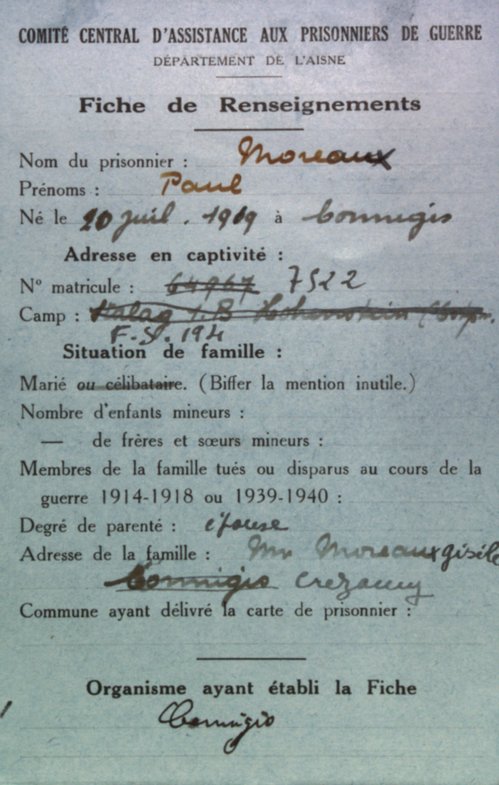 COMITÉ CENTRAL D'ASSISTANCE AUX PRISONNIERS DE GUERRE
DÉPARTEMENT DE L'AISNE
Fiche de Renseignements
Nom du prisonnier : Moreaux
Prénoms : Paul
Né le 20 juil. 1919 à Connigis
Adresse en captivité :
N° matricule : 64967 7522
Camp : Stalag 1.B Hohenstein
F-St. 194
Situation de famille :
Marié ou célibataire. (Biffer la mention inutile.)
Nombre d'enfants mineurs :
— de frères et sœurs mineurs :
Membres de la famille tués ou disparus au cours de la
guerre 1914-1918 ou 1939-1940 :
Degré de parenté : épouse
Adresse de la famille : Moreaux gisèle
Connigis Crezancy
Commune ayant délivré la carte de prisonnier :
Organisme ayant établi la Fiche
Connigis